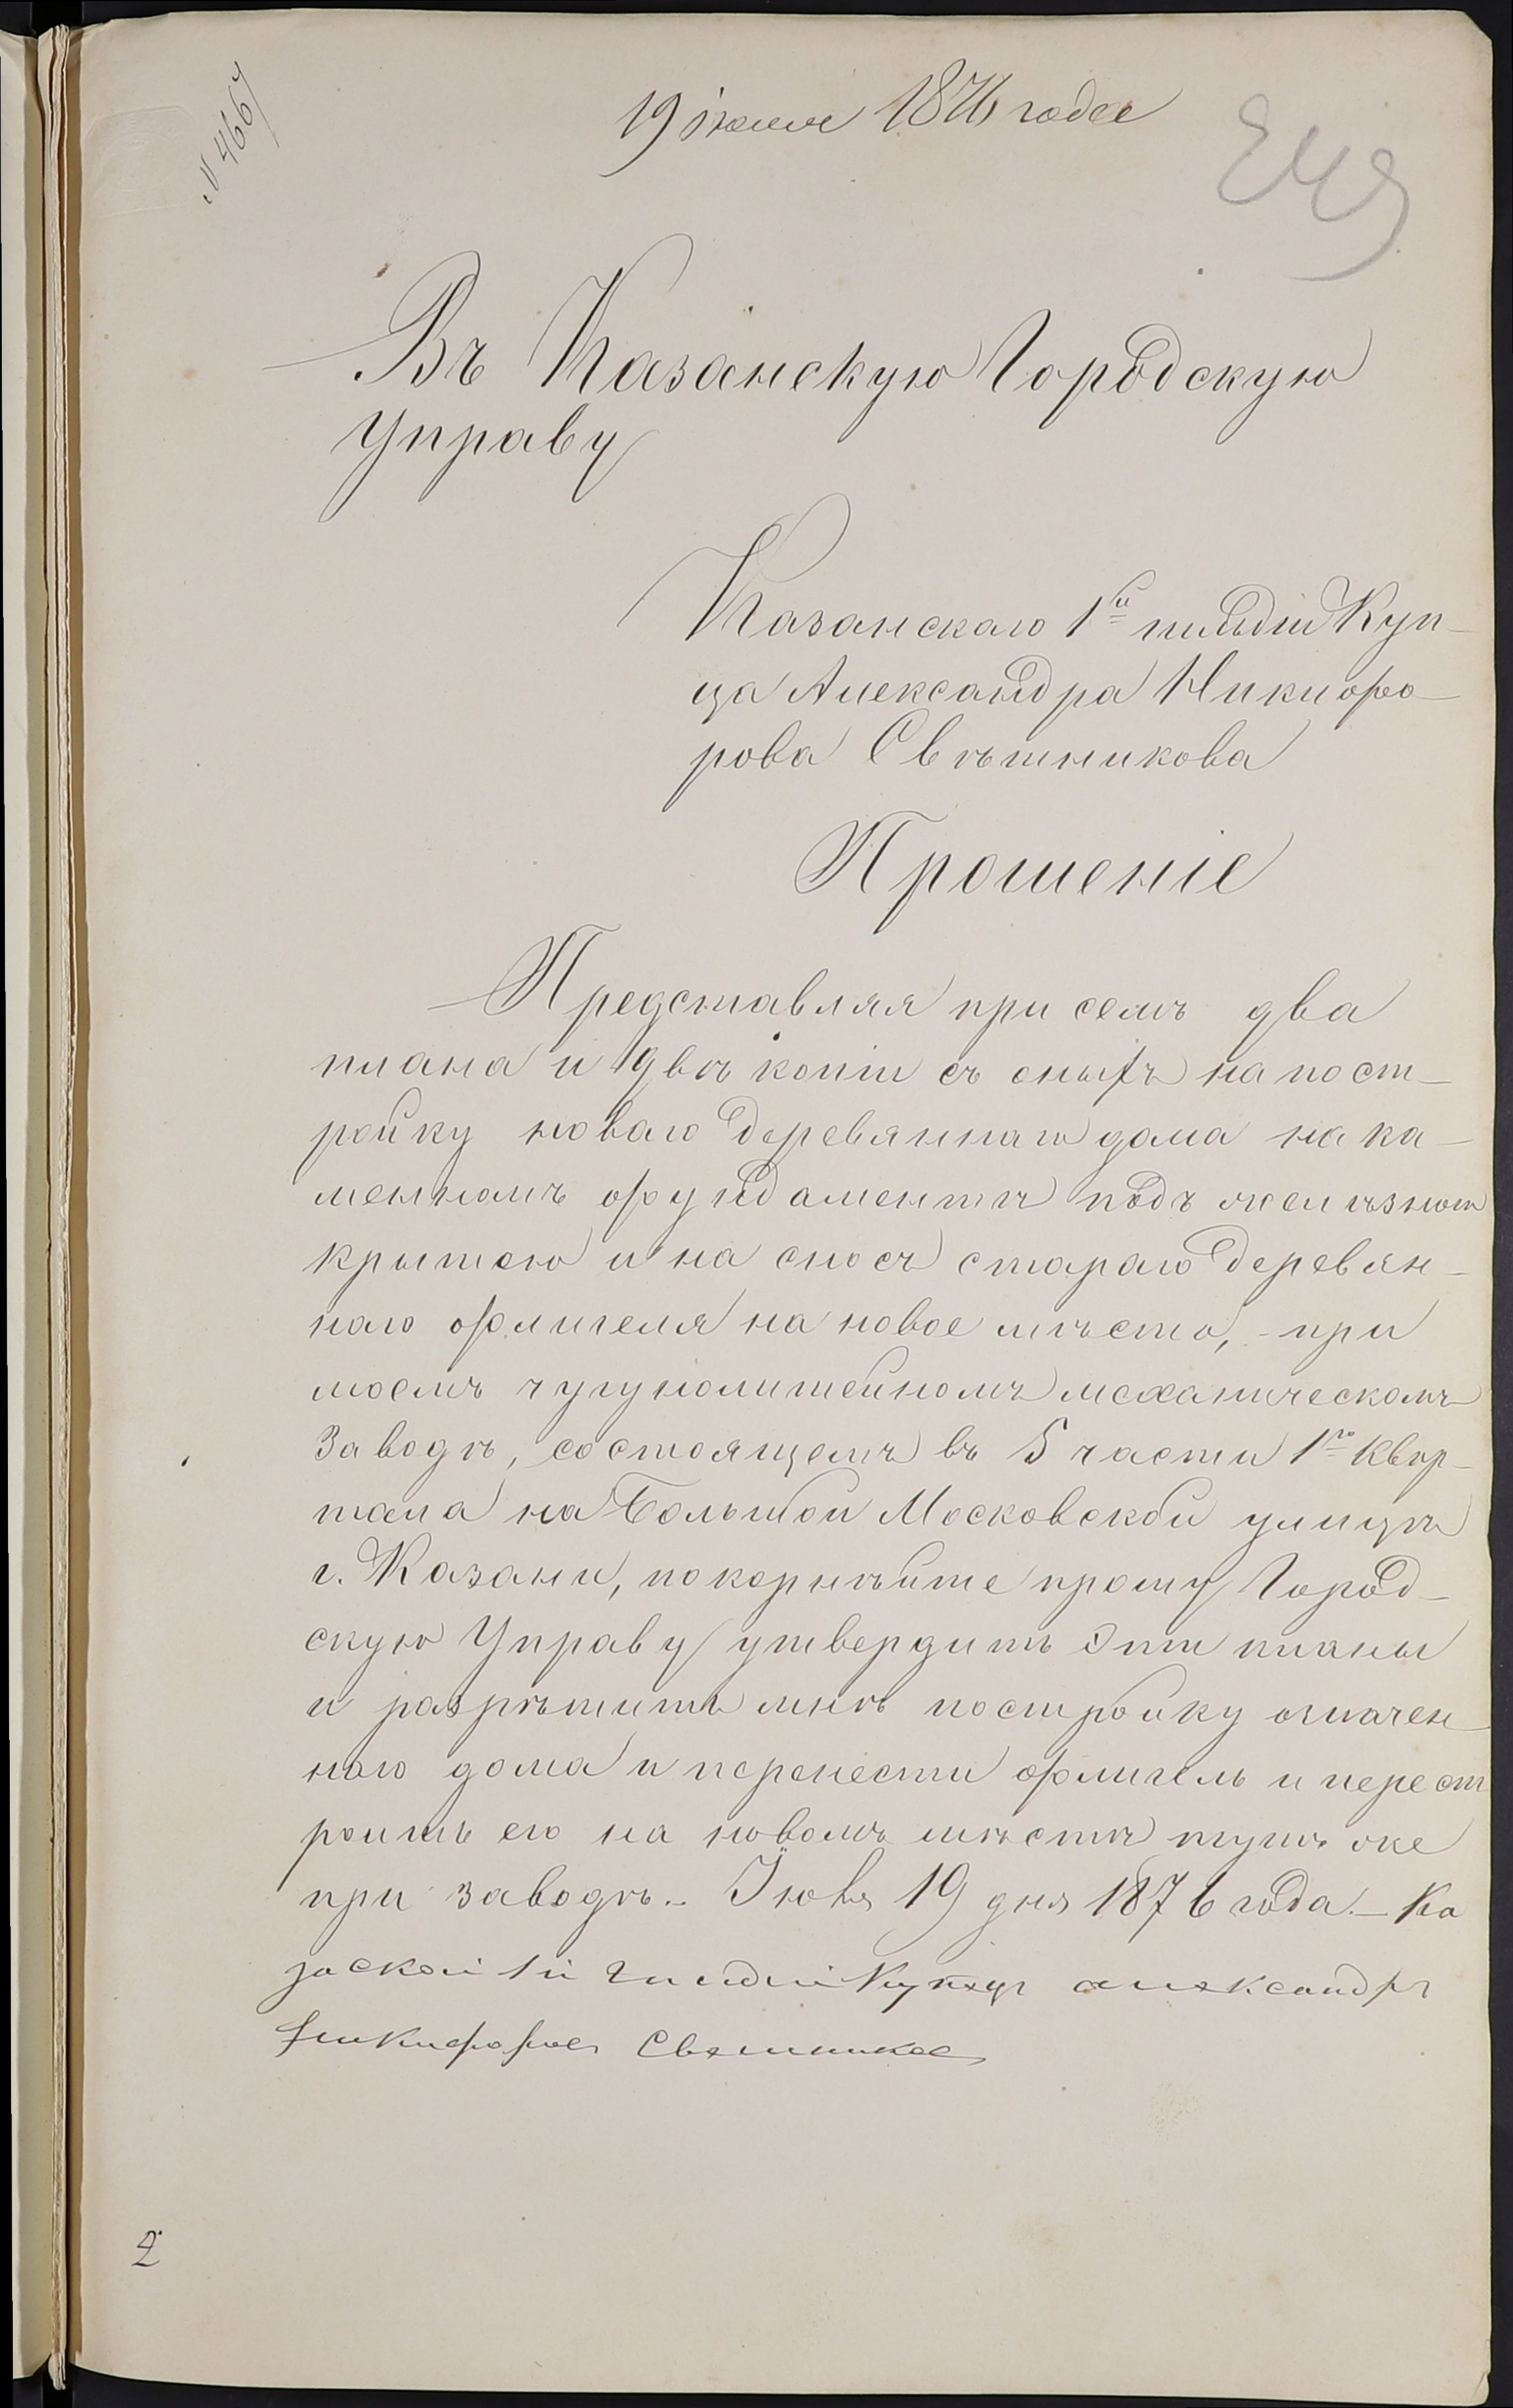 № 4667
19 іюня 1876 года
Въ Казанскую Городскую
Управу
Казанскаго 1й гильдіи Куп-
ца Александра Никифо-
рова Свѣшникова
Прошеніе
Представляя при семъ два
плана и двѣ копіи съ оныхъ на пост-
ройку новаго деревяннаго дома на ка-
менномъ фундаментѣ подъ желѣзной
крышею и на сносъ стараго деревян-
наго флигеля на новое мѣсто, - при
моемъ чугунолитейномъ механическомъ
Заводѣ, состоящемъ въ 5 части 1го Квар-
тала на Большой Московской улицѣ
г. Казани, покорнѣйше прошу Город-
скую Управу утвердить эти планы
и разрѣшить мнѣ постройку означен-
наго дома и перенести флигель и перест
роить его на новомъ мѣстѣ тутъ же
при заводѣ. - Іюня 19 дня 1876 года. - Ка
заской 1й Гильдіи Купецъ александръ
Никифоровъ Свешников
2